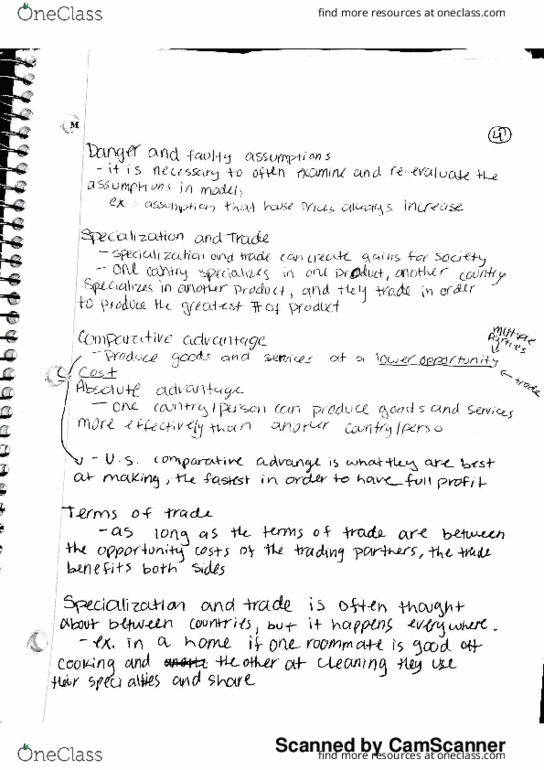 OneClass
find more resources at oneclass.com
M
4
Danger and faulty assumptions
- it is necessary to often examine and re-evaluate the
assumptions in models
ex: assumption that house prices always increase
Specialization and Trade
- specialization and trade can create gains for society
- one country specializes in one product, another country
specializes in another product, and they trade in order
to produce the greatest # of product
Comparative advantage
multiple
parties
- Produce goods and services at a lower opportunity
cost
← trade
Absolute advantage
- one country/person can produce goods and services
more effectively than another country/perso
- U.S. comparative advange is what they are best
at making, the fastest in order to have full profit
Terms of trade
- as long as the terms of trade are between
the opportunity costs of the trading partners, the trade
benefits both sides
Specialization and trade is often thought
about between countries, but it happens everywhere.
- ex. in a home if one roommate is good at
cooking and the other at cleaning they use
their specialties and share
Scanned by CamScanner
OneClass
find more resources at oneclass.com